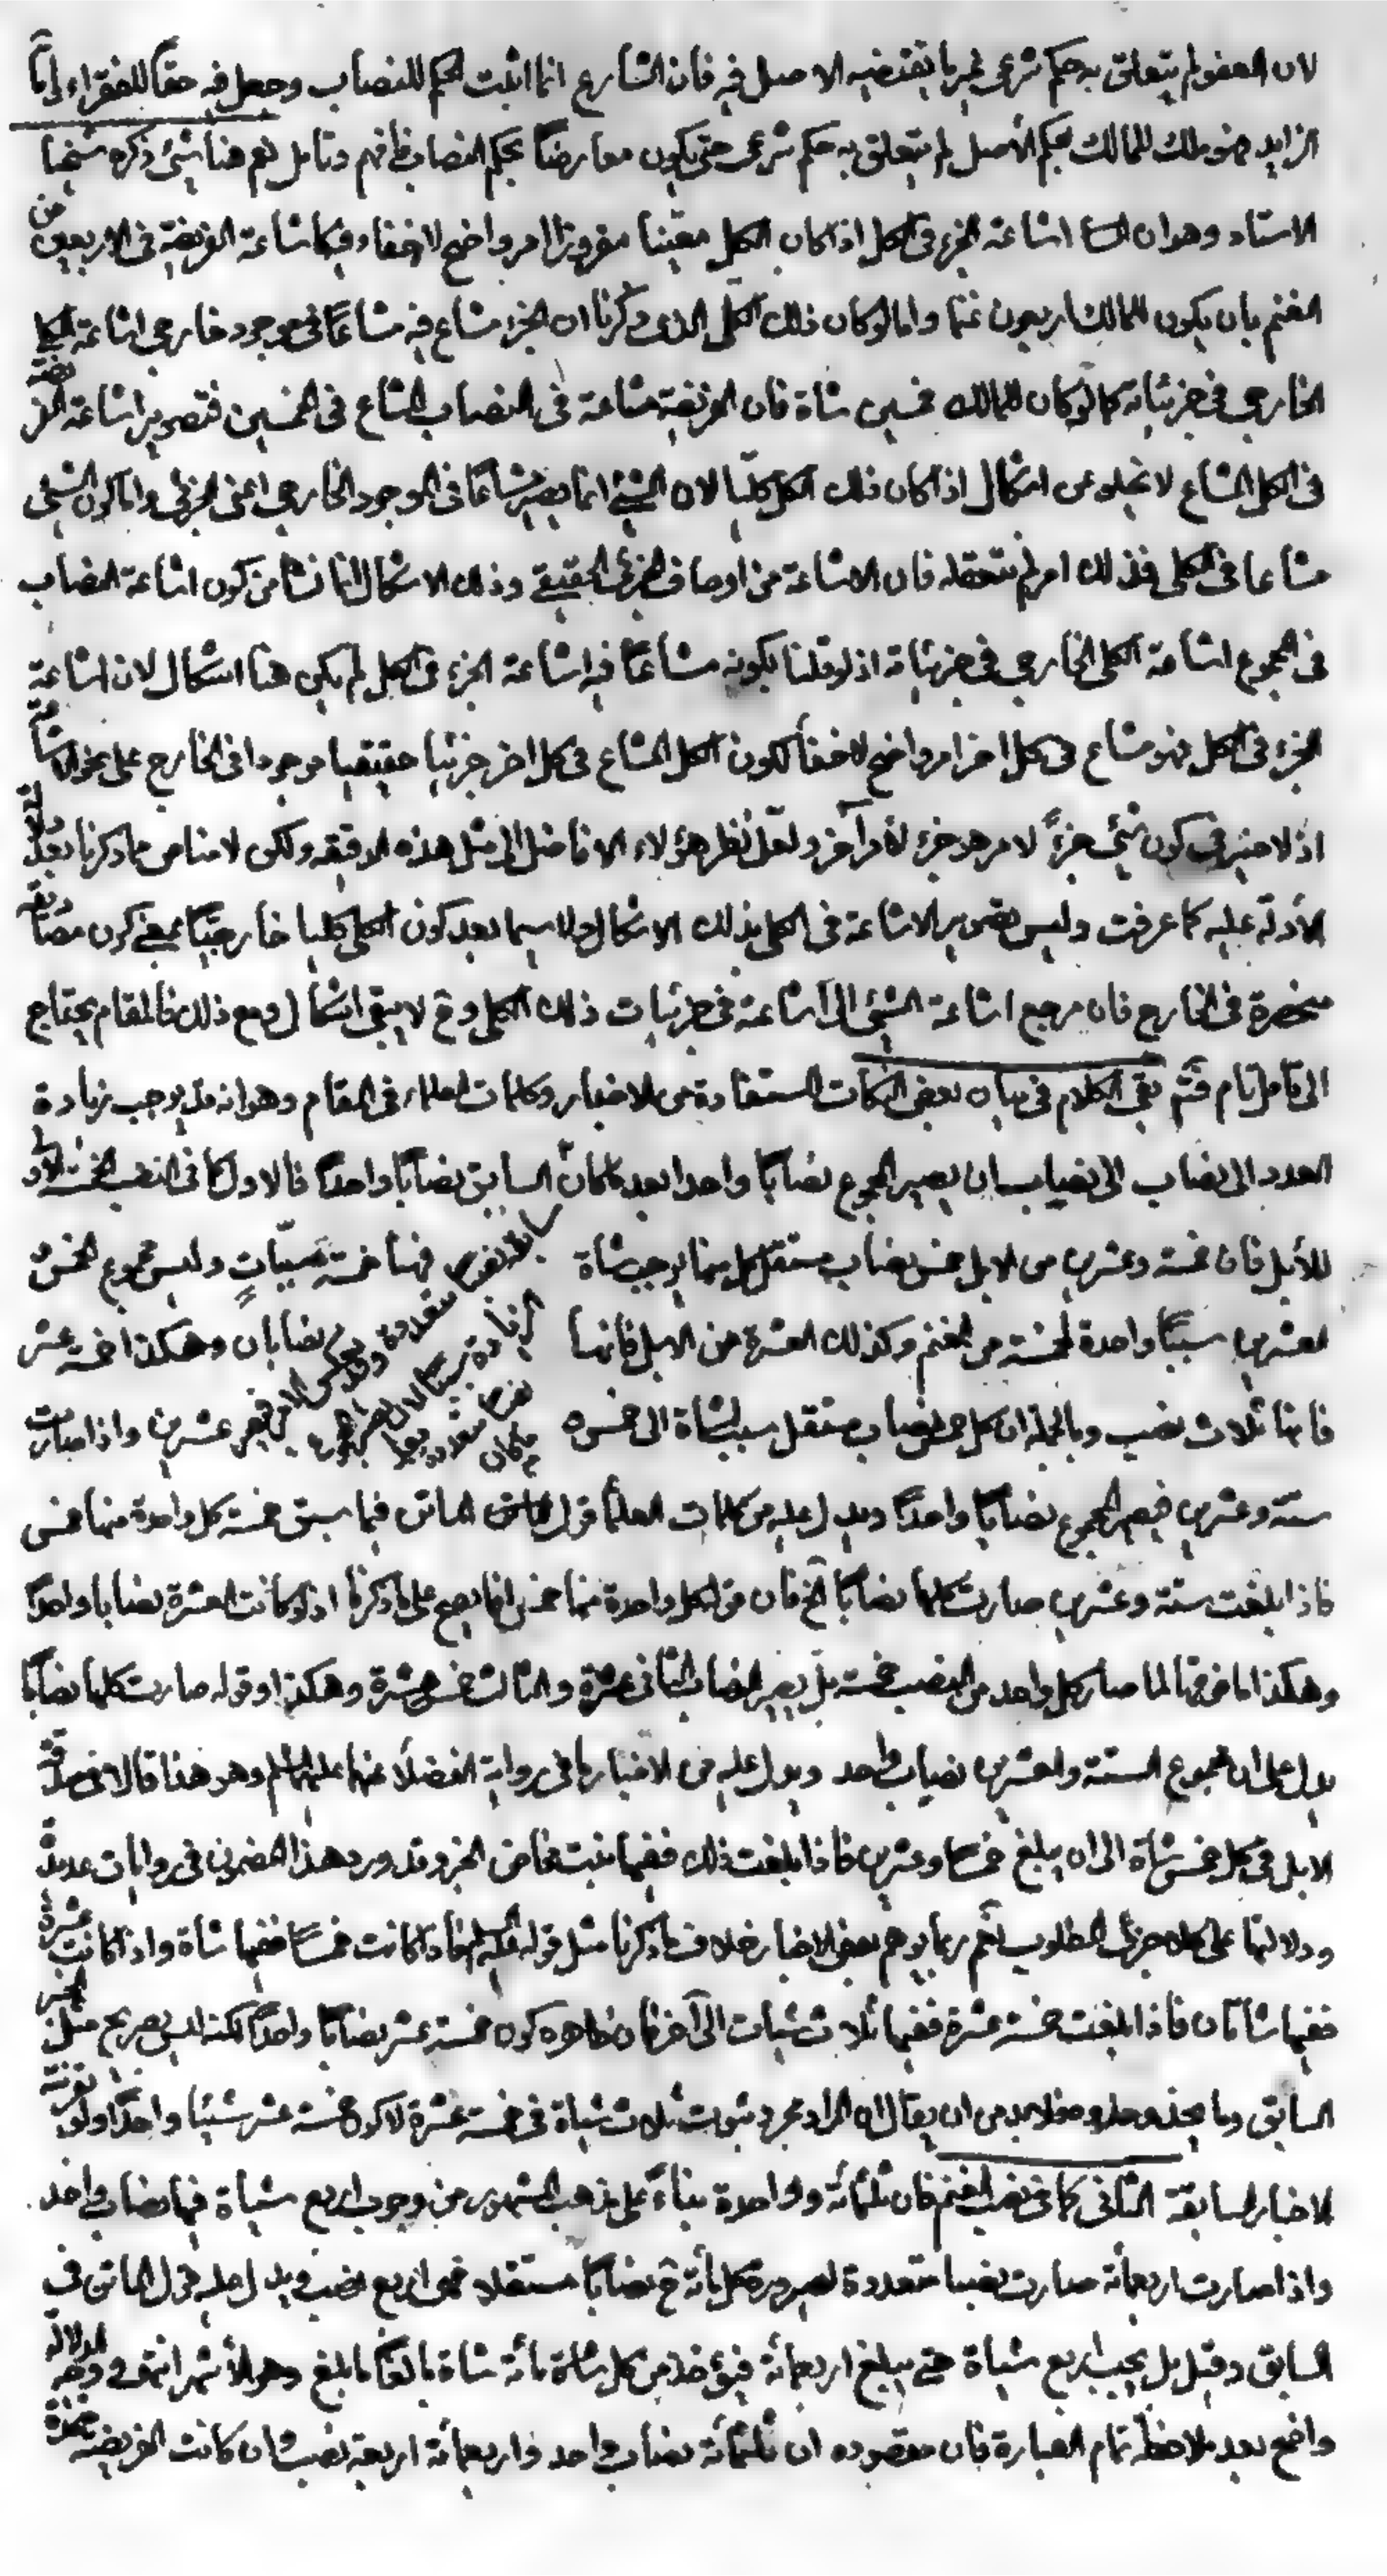 لان العفو لم يتعلق به حكم شرعى غير ما يقتضيه الاصل فيه فان الشارع انما اثبت الحكم للنصاب وجعل فيه حقاً للفقراء وامّا
الزايد فهو ملك للمالك بحكم الأصل لم يتعلق به حكم شرعى حتى يكون معارضاً بحكم النصاب فافهم وتامل نعم هنا شئ ذكره شيخنا
الاستاد وهو ان اشاعة الجزء فى الكل اذا كان الكل معيّنا مفروزا امر واضح لاخفاء فيه كاشاعة الفريضة فى الاربعين من
الغنم بان يكون للمالك اربعون غنما واما لو كان ذلك الكل الذى ذكرنا ان الجزء مشاع فيه مشاعاً فى موجود خارجى اشاعة الكلى
الخارجى فى جزئياته كما لو كان للمالك خمسين شاة فان الفريضة مشاعة فى النصاب المشاع فى الخمسين فتصوير اشاعة الفريضة
فى الكل المشاع لا تخلو عن اشكال اذا كان ذلك الكل كليّا لان الشئ انما يصير مشاعاً فى الموجود الخارجى اعنى الجزئى واما كون الشئ
مشاعا فى الكلى فذلك امر لم نتعقله فان الاشاعة من اوصاف الجزئى الحقيقى وذلك الاشكال انما نشأ من كون اشاعة النصاب
فى المجموع اشاعة الكلى الخارجى فى جزئياته اذ لو قلنا بكونه مشاعاً فيه اشاعة الجزء فى الكل لم يكن هنا اشكال لان اشاعة
الجزء فى الكل فهو مشاع فى كل اخر امر واضح لاخفأ لكون الكل المشاع فى كل اخر جزئيا حقيقيا موجودا فى الخارج على نحو الاشاعة
اذ لا ضير فى كون شئ جزءً لامر هو جزء لأمر آخر ولعل نظر هؤلاء الافاضل الى مثل هذه الدقيقه ولكن لامناص مما ذكرنا بعد دلالة
الأدلّة عليه كما عرفت وليس تصوير الاشاعة فى الكلى بذلك الاشكال ولا سيما بعد كون الكلى كليا خارجيّا بمعنى كون مصاديقه
منحصرة فى الخارج فان مرجع اشاعة الشئ الى اشاعته فى جزئيات ذلك الكلى وح لا يبقى اشكال ومع ذلك فالمقام يحتاج
الى تامل تام فتم بقى الكلام فى بيان بعض النكات المستفادة من الاخبار وكلمات العلماء فى المقام وهو انه قد يوجب زيادة
العدد الى نصاب الى نصاب ان يصير المجموع نصابًا واحدا بعد ما كان السابق نصابًا واحداً فالاول كما فى النصب الخمسة الأول
للأبل فان خمسة وعشرين من الابل خمس نصاب مستقل كل منها يوجب شاة فهنا خمسة مسبّبات وليس مجموع الخمس و
العشرين سببًا واحدة لخمسة من الغنم وكذلك العشرة من الابل فانها نصابان وهكذا خمسة عشر
فانها ثلاث نصب وبالجملة ان كل خمس نصاب مستقل سبب لشاة الى خمس و عشرين واذا صارت
ستة وعشرين فيصير المجموع نصابًا واحداً ويدل عليه من كلمات العلمأ قول الماتن فيما سبق خمسة كل واحدة منها خمس
فاذا بلغت ستة وعشرين صارت كلها نصابًا الخ فان قوله كل واحدة منها خمس انما يصح على ما ذكرنا اذ لو كانت العشرة نصابا واحداً
وهكذا ما فوقها لما صار كل واحد من النصب خمسة بل يصير النصاب الثانى عشرة والثالث خمس عشرة وهكذا وقوله صارت كلها نصابًا
يدل على ان مجموع الستة والعشرين نصاب واحد ويدل عليه من الاخبار ما فى رواية الفضلأ عنهما عليهما السلم وهو هذا قالا فى صدقة
الابل فى كل خمس شاة الى ان يبلغ خمسا وعشرين فاذا بلغت ذلك ففيها بنت مخاض الخبر وقد ورد هذا المضمون فى روايات عديدة
ودلالتها على كلا جزئى المطلوب نعم ربما يوهم بعض الاخبار خلاف ما ذكرنا مثل قوله فاذا كانت خمسًا ففيها شاة واذا كانت عشرة
ففيها شاتان فاذا بلغت خمسة عشرة ففيها ثلاث شياه الى آخر فان ظاهره كون خمسة عشر نصابًا واحداً لكنه ليس بصريح مثل الخبر
السابق وما يحذو حذوه فلابد من ان يقال ان المراد مجرد ثبوت ثلاث شياة فى خمسة عشرة لا كون خمسة عشر شيئا واحدًا ولو بقرينة
الاخبار السابقة الثانى كما فى نصب الغنم فان ثلثمأئة وواحدة بناءً على مذهب المشهور من وجوب اربع شياة فيها نصاب واحد
واذا صارت اربعمأئة صارت نصبا متعددة لصيرورة كل مأئة ح نصابًا مستقلا فهى اربع نصب ويدل عليه قول الماتن فى
السابق وقيل بل يجب اربع شياة حتى يبلغ اربعمأئة فيؤخذ من كل مأئة شاة بالغًا ما بلغ وهو الأشهر انتهى ووجه الدلالة
واضح بعد ملاحظة تمام العبارة فان مقصوده ان ثلثمأئة نصاب واحد واربعمأئة اربعة نصب وان كانت الفريضة متحدة